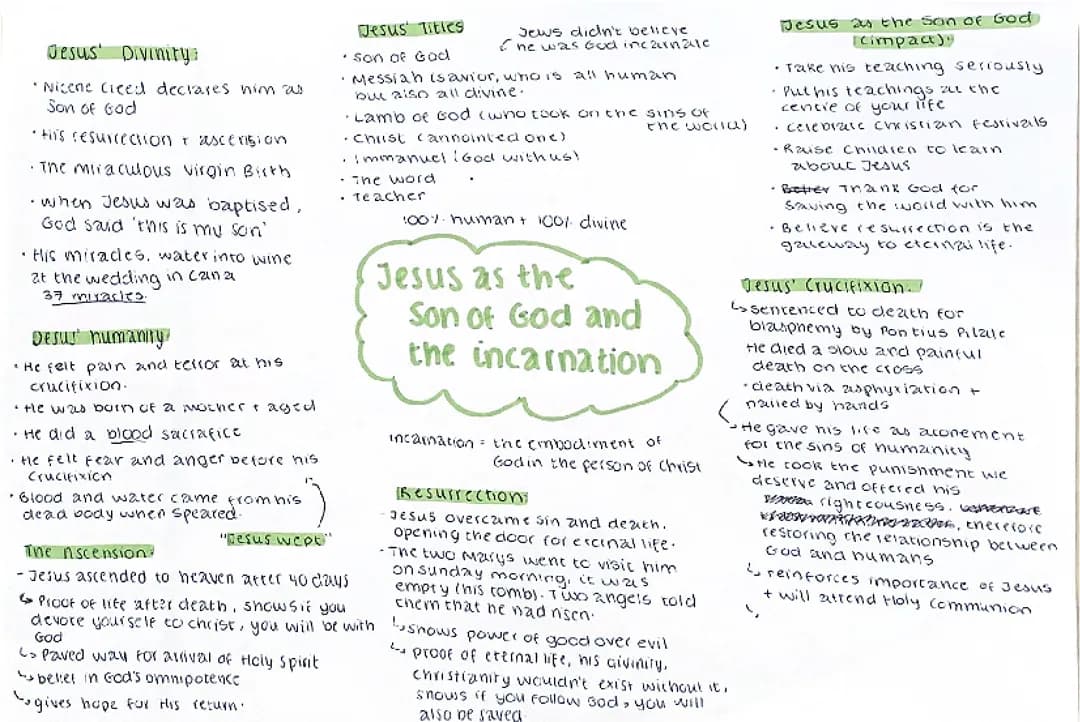 Jesus' Divinity:
• Nicene Creed declares him as
Son of God
• His resurrection + ascension
• The miraculous Virgin Birth
• when Jesus was baptised,
God said 'this is my son'
• His miracles, water into wine
at the wedding in Cana
37 miracles.
Jesus' humanity
• He felt pain and terror at his
crucifixion.
• He was born of a mother + aged
• He did a blood sacrafice
• He felt fear and anger before his
crucifixion
• Blood and water came from his
dead body when speared.
"Jesus wept"
The Ascension:
- Jesus ascended to heaven after 40 days
↳ Proof of life after death, shows if you
devote yourself to christ, you will be with
God
↳ Paved way for arrival of Holy Spirit
↳ belief in God's omnipotence
↳ gives hope for His return.
Jesus' Titles
Jews didn't believe
he was God incarnate
• Son of God
• Messiah (savior, who is all human
but also all divine.
• Lamb of God (who took on the sins of
the world)
• Christ (annointed one)
• Immanuel (God with us)
• The word
• Teacher
100% human + 100% divine
Jesus as the
Son of God and
the incarnation
incarnation = the embodiment of
God in the person of Christ
Resurrection:
- Jesus overcame sin and death,
opening the door for eternal life.
• The two Marys went to visit him
on Sunday morning, it was
empty (his tomb). Two angels told
them that he had risen.
↳ shows power of good over evil
↳ proof of eternal life, his divinity,
Christianity wouldn't exist without it,
shows if you follow God, you will
also be saved
Jesus as the Son of God
(impact):
• Take his teaching seriously
• Put his teachings at the
centre of your life
• Celebrate Christian Festivals
• Raise children to learn
about Jesus
• Thank God for
saving the world with him
• Believe resurrection is the
gateway to eternal life.
Jesus' Crucifixion:
↳ sentenced to death for
blasphemy by Pontius Pilate
He died a slow and painful
death on the cross
• death via asphyxiation +
nailed by hands
↳ He gave his life as atonement
for the sins of humanity
↳ He took the punishment we
deserve and offered his
righteousness.
, therefore
restoring the relationship between
God and humans
↳ reinforces importance of Jesus
+ will attend Holy Communion